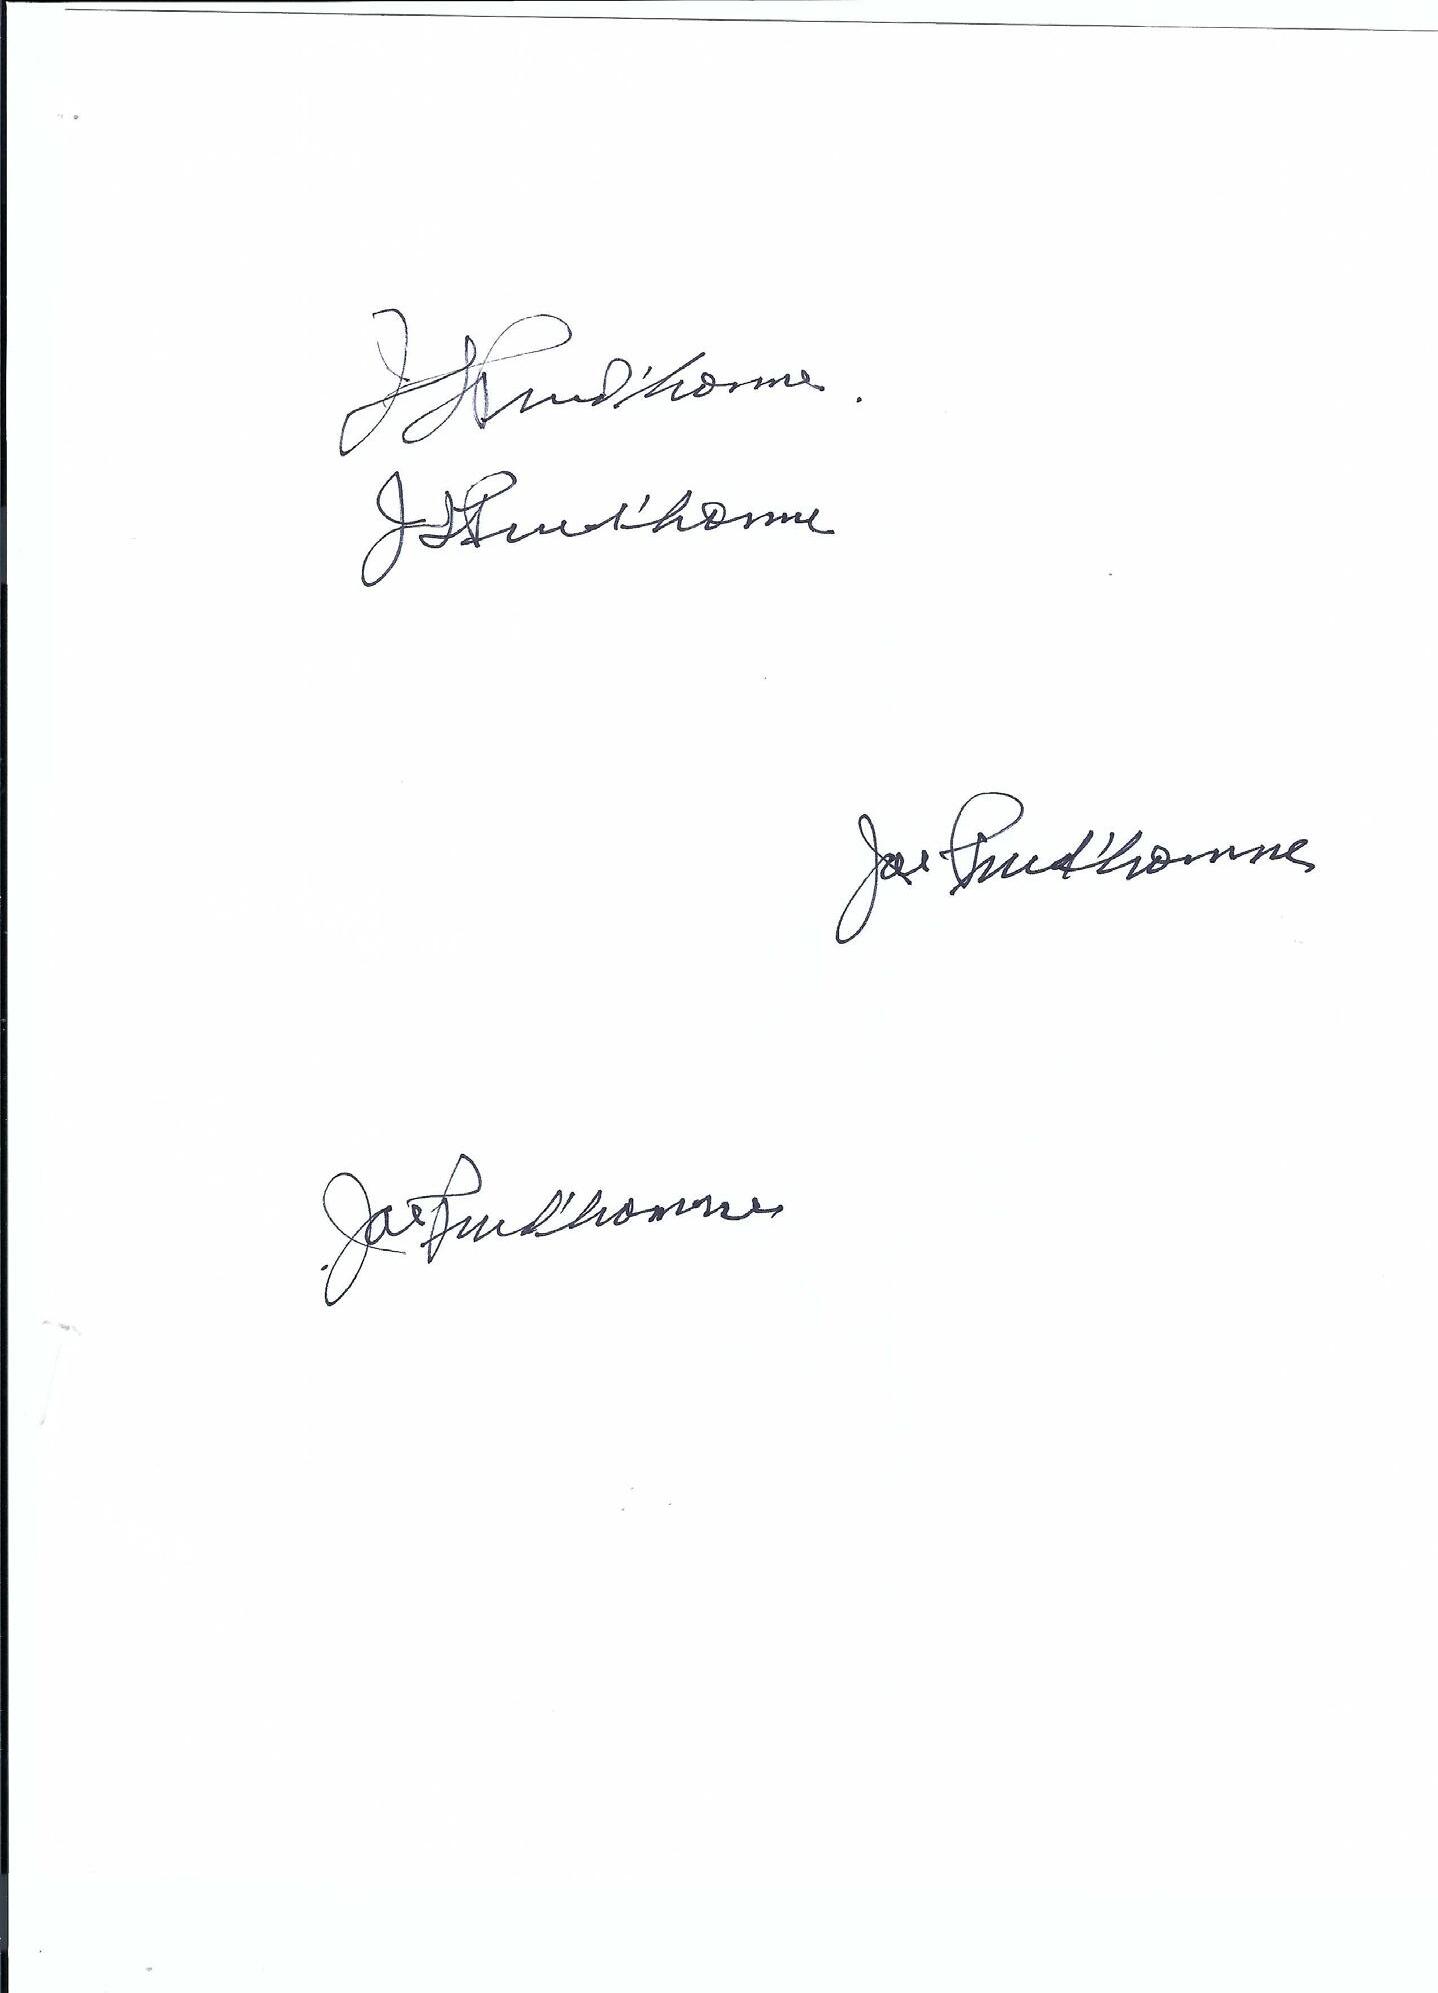 J J Prud'homme.
J J Prud'homme
Joe Prud'homme
Joe Prud'homme